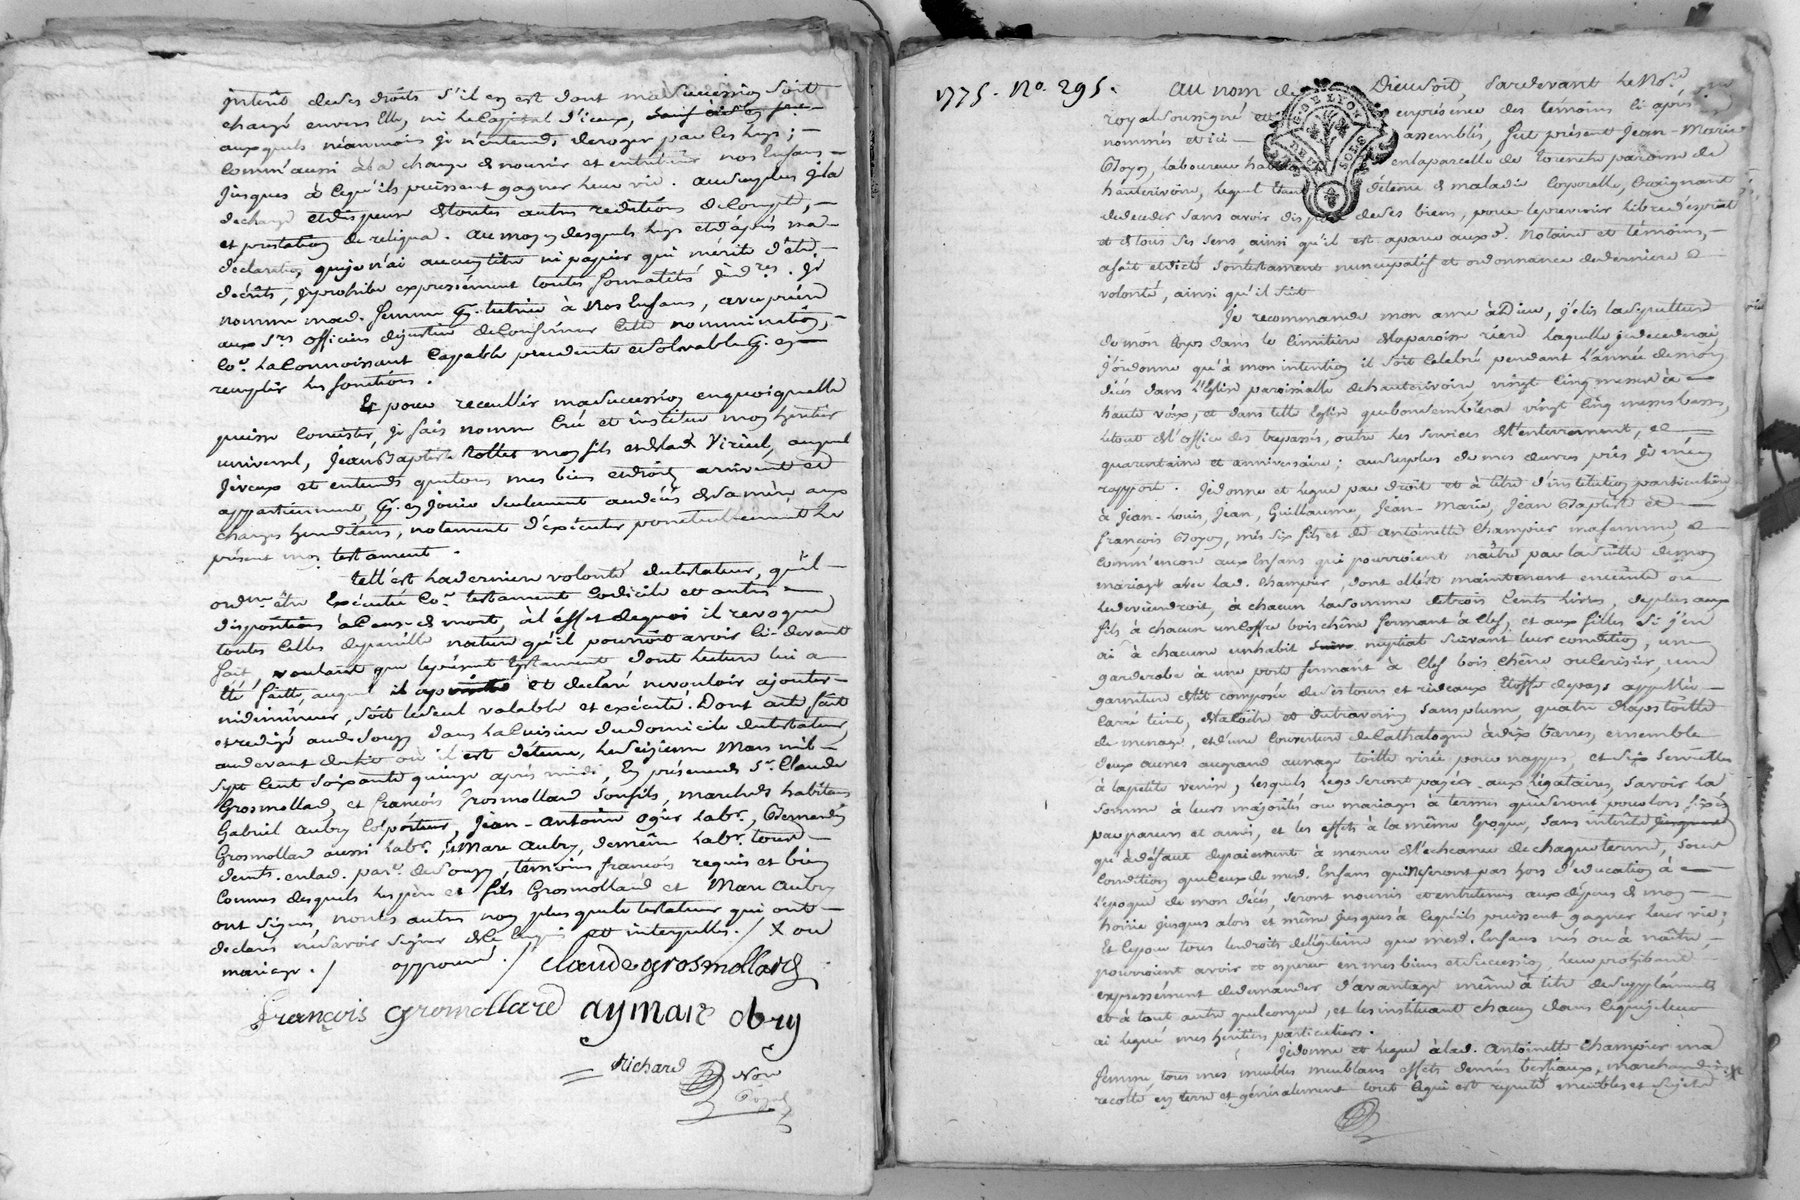 intérêt de ses droits s'il en est dont ma succession soit
chargé envers Elle, ni le Capital d'iceux,
auxquels néanmoins je n'entend, deroger par ces legs ; —
Comm'aussi à la charge de nourrir et entretenir nos Enfans —
jusques à cequ'ils puissent gagner leur vie. au surplus je la
decharge et dispense de toutes autres redditions de Compte, —
et prestation de reliqua. au moyen desquels legs et d'après ma —
declaration que je n'ai aucun titre ni papier qui mérite d'etre —
décrits, je prohibe expressément toutes formalités jud.res. Je
nomme mad. femme tutrice à nos Enfans, avec prière
aux s.rs officiers de justice de Confirmer Cette nommination, —
Co.e la Connoissant Capable prudente et solvable en —
remplir les fonctions.
Et pour recueillir ma succession en quoi qu'elle
puisse Consister, je fais nomme Créé et institue mon héritier
universel, Jean Baptiste Rollet mon fils et de lad. Viriul, auquel
je veux et entends que tous mes biens et droits arrivent et
appartiennent, en jouir seulement au décès de sa mère, aux
charges héréditaires, notamment d'exécuter ponctuellement le
présent mon testament.
Tell'est la dernière volonté du testateur, qu'il —
ord.ne être Exécutée Co.e testament Codicile et autres —
dispositions à Cause de mort, à l'effet de quoi il revoque
toutes Celles de pareille nature qu'il pourroit avoir Ci-devant
fait, voulant que le présent testament dont lecture lui a —
été faitte, auquel il a persisté et declaré ne vouloir ajouter —
ni diminuer, soit le seul valable et exécuté. Dont acte fait
et redigé aud. Souzy dans la Cuisine du domicile du testateur,
au devant du lit où il est détenu, le seizieme Mars mil —
sept Cent soixante quinze après midi, En présence de s.r Claude
Grosmollard, et François Grosmollard son fils, marchands habitans
Gabriel Aubry Colporteur, Jean-Antoine Oger lab.r, Benoit
Grosmollard aussi lab.r, et Marc Aubry, de même lab.r tous
dem.ts en lad. par.e de Souzy, temoins françois requis et bien
Connus desquels les père et fils Grosmollard et Marc Aubry
ont signés, non les autres non plus que le testateur qui ont —
declaré ne savoir signer de ce Enquis et interpellés. / X ou
mariage. / approuvé. / Claude grosmollard
François Gromollard aymarc obry
Richard Not.
Royal
1775. No. 295.
G. DE LYON
DEUX SOLS
Au nom de Dieu soit, Pardevant le No.re
royal soussigné et en présence des témoins ci après
nommés et ici — assemblés, fut présent Jean-Marie
Goyon, laboureur habitant en la parcelle de torenche paroisse de
hauterivoire, lequel étant détenu de maladie Corporelle, Craignant
de deceder sans avoir disposé de ses biens, pour le prevenir libre d'esprit
et de tous ses sens, ainsi qu'il est aparu auxd. Notaire et témoins, —
a fait et dicté son testament nuncupatif et ordonnance de derniere
volonté, ainsi qu'il suit
Je recommande mon ame à Dieu, j'élis la sépulture
de mon Corps dans le Cimitière de la paroisse riere laquelle je decederai,
j'ordonne qu'à mon intention il soit Celebré pendant l'année de mon
décès dans l'Eglise paroissialle de hauterivoire vingt Cinq messes à —
haute voix, et dans telle Eglise que bon semblera vingt Cinq messes basses,
le tout de l'office des trepassés, outre les services de l'enterrement, —
quarantaine et anniversaire ; au surplus de mes œuvres pies je m'en
rapporte. Je donne et legue par droit et à titre d'institution particulière
à Jean-Louis, Jean, Guillaume, Jean-Marie, Jean Baptiste et —
François Goyon, mes six fils et de Antoinette Champier ma femme, —
Comm'encore aux Enfans qui pourroient naître par la suitte de mon
mariage avec lad. Champier, dont elle est maintenant enceinte ou
le deviendroit, à chacun la somme de trois Cents livres, de plus aux
fils à chacun un Coffre bois chêne fermant à Clef, et aux filles si j'en
ai à chacune un habit nuptial suivant leur condition, un —
garderobe à une porte fermant à Clef bois Chêne ou Cerisier, une
garniture de lit composée de ses tours et rideaux Etoffe de pays appellée —
Carré teint, de la Coitre et du traversin sans plume, quatre draps toille
de menage, et d'une Couverture de Cathalogne à dix barres, ensemble
deux aunes au grand aunage toille virée pour nappes, et six serviettes
à la petite venise, lesquels legs seront payés aux légataires, savoir la
somme à leurs majorités ou mariages à termes qui seront pour lors fixés
par parens et amis, et les effets à la même Epoque, sans intérêts
qu'à défaut de paiement à mesure de l'echeance de chaque terme, sous
Condition que Ceux de mesd. Enfans qui ne seront pas hors d'éducation à —
l'epoque de mon décès, seront nourris et entretenus aux dépens de mon —
hoirie jusques alors et même jusques à Cequ'ils puissent gagner leur vie ;
Et Ce pour tous les droits de légitime que mesd. Enfans nés ou à naître, —
pourroient avoir et esperer en mes biens et succession, leur prohibant
expressément de demander d'avantage même à titre de supplément
et à tout autre quelconque, et les instituant chacun dans Ceque je leur
ai legué mes héritiers particuliers.
Je donne et legue à lad. Antoinette Champier ma
femme, tous mes meubles meublans effets denrées bestiaux, marchandises
recolte en terre et généralement tout Cequi est reputé meubles et sujet à